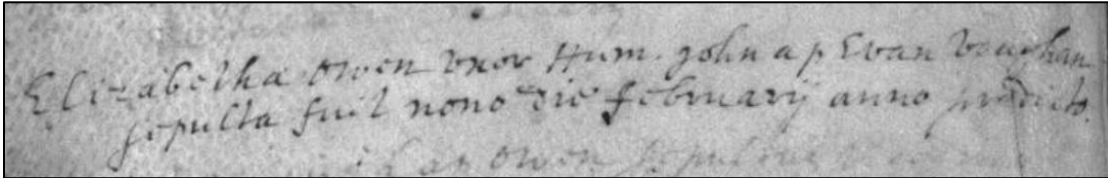 Elizabetha Owen vxor Hum. John ap Evan Vaughan
sepulta fuit nono die february anno predicto.
ap Owen sepultus